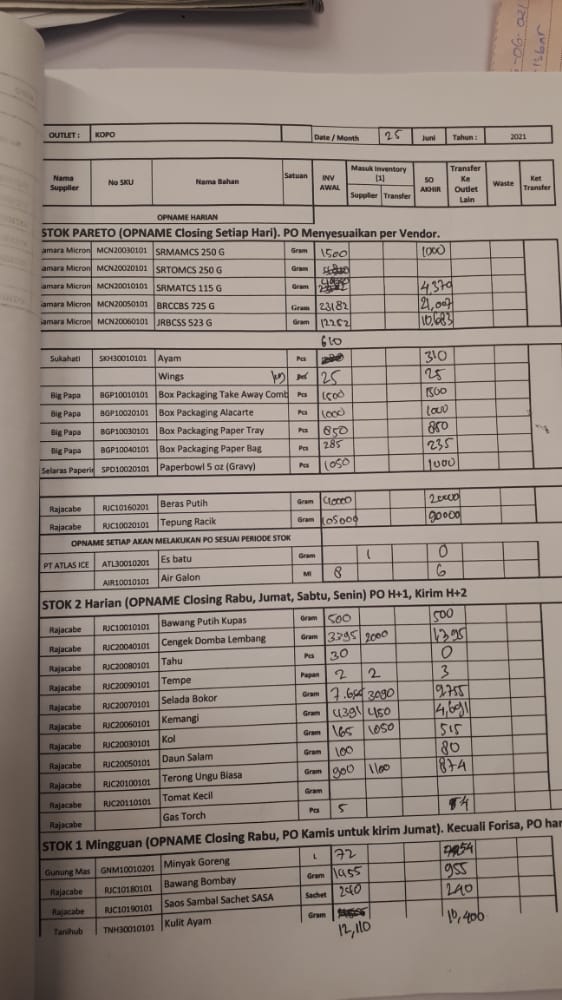 -06-021
isbar
OUTLET : KOPO Date / Month 25 Juni Tahun : 2021
Nama Supplier No SKU Nama Bahan Satuan INV AWAL Masuk Inventory [1] Supplier Transfer SO AKHIR Transfer Ke Outlet Lain Waste Ket Transfer
OPNAME HARIAN
STOK PARETO (OPNAME Closing Setiap Hari). PO Menyesuaikan per Vendor.
amara Micron MCN20030101 SRMAMCS 250 G Gram 1500 1000
amara Micron MCN20020101 SRTOMCS 250 G Gram
amara Micron MCN20010101 SRMATCS 115 G Gram 4,379
amara Micron MCN20050101 BRCCBS 725 G Gram 23182 21,007
amara Micron MCN20060101 JRBCSS 523 G Gram 12252 10,683
610
Sukahati SKH30010101 Ayam Pcs 310
Wings 25 25
Big Papa BGP10010101 Box Packaging Take Away Comb Pcs 1500 1500
Big Papa BGP10020101 Box Packaging Alacarte Pcs 1000 1000
Big Papa BGP10030101 Box Packaging Paper Tray Pcs 850 850
Big Papa BGP10040101 Box Packaging Paper Bag Pcs 285 235
Selaras Paperin SPD10020101 Paperbowl 5 oz (Gravy) Pcs 1050 1000
Rajacabe RJC10160201 Beras Putih Gram 40000 20000
Rajacabe RJC10020101 Tepung Racik Gram 105000 90000
OPNAME SETIAP AKAN MELAKUKAN PO SESUAI PERIODE STOK
PT ATLAS ICE ATL30010201 Es batu Gram 1 0
AIR10010101 Air Galon Ml 8 6
STOK 2 Harian (OPNAME Closing Rabu, Jumat, Sabtu, Senin) PO H+1, Kirim H+2
Rajacabe RJC10010101 Bawang Putih Kupas Gram 500 500
Rajacabe RJC20040101 Cengek Domba Lembang Gram 3395 2000 1395
Rajacabe RJC20080101 Tahu Pcs 30 0
Rajacabe RJC20090101 Tempe Papan 2 2 3
Rajacabe RJC20070101 Selada Bokor Gram 3090 9755
Rajacabe RJC20060101 Kemangi Gram 4391 450 4,691
Rajacabe RJC20030101 Kol Gram 165 1050 515
Rajacabe RJC20050101 Daun Salam Gram 100 80
Rajacabe RJC20100101 Terong Ungu Biasa Gram 900 1100 874
Rajacabe RJC20110101 Tomat Kecil Gram
Rajacabe Gas Torch Pcs 5 4
STOK 1 Mingguan (OPNAME Closing Rabu, PO Kamis untuk kirim Jumat). Kecuali Forisa, PO har
Gunung Mas GNM10010201 Minyak Goreng L 72 54
Rajacabe RJC10180101 Bawang Bombay Gram 1955 955
Rajacabe RJC10190101 Saos Sambal Sachet SASA Sachet 240 240
Tanihub TNH30010101 Kulit Ayam Gram 12,110 10,400